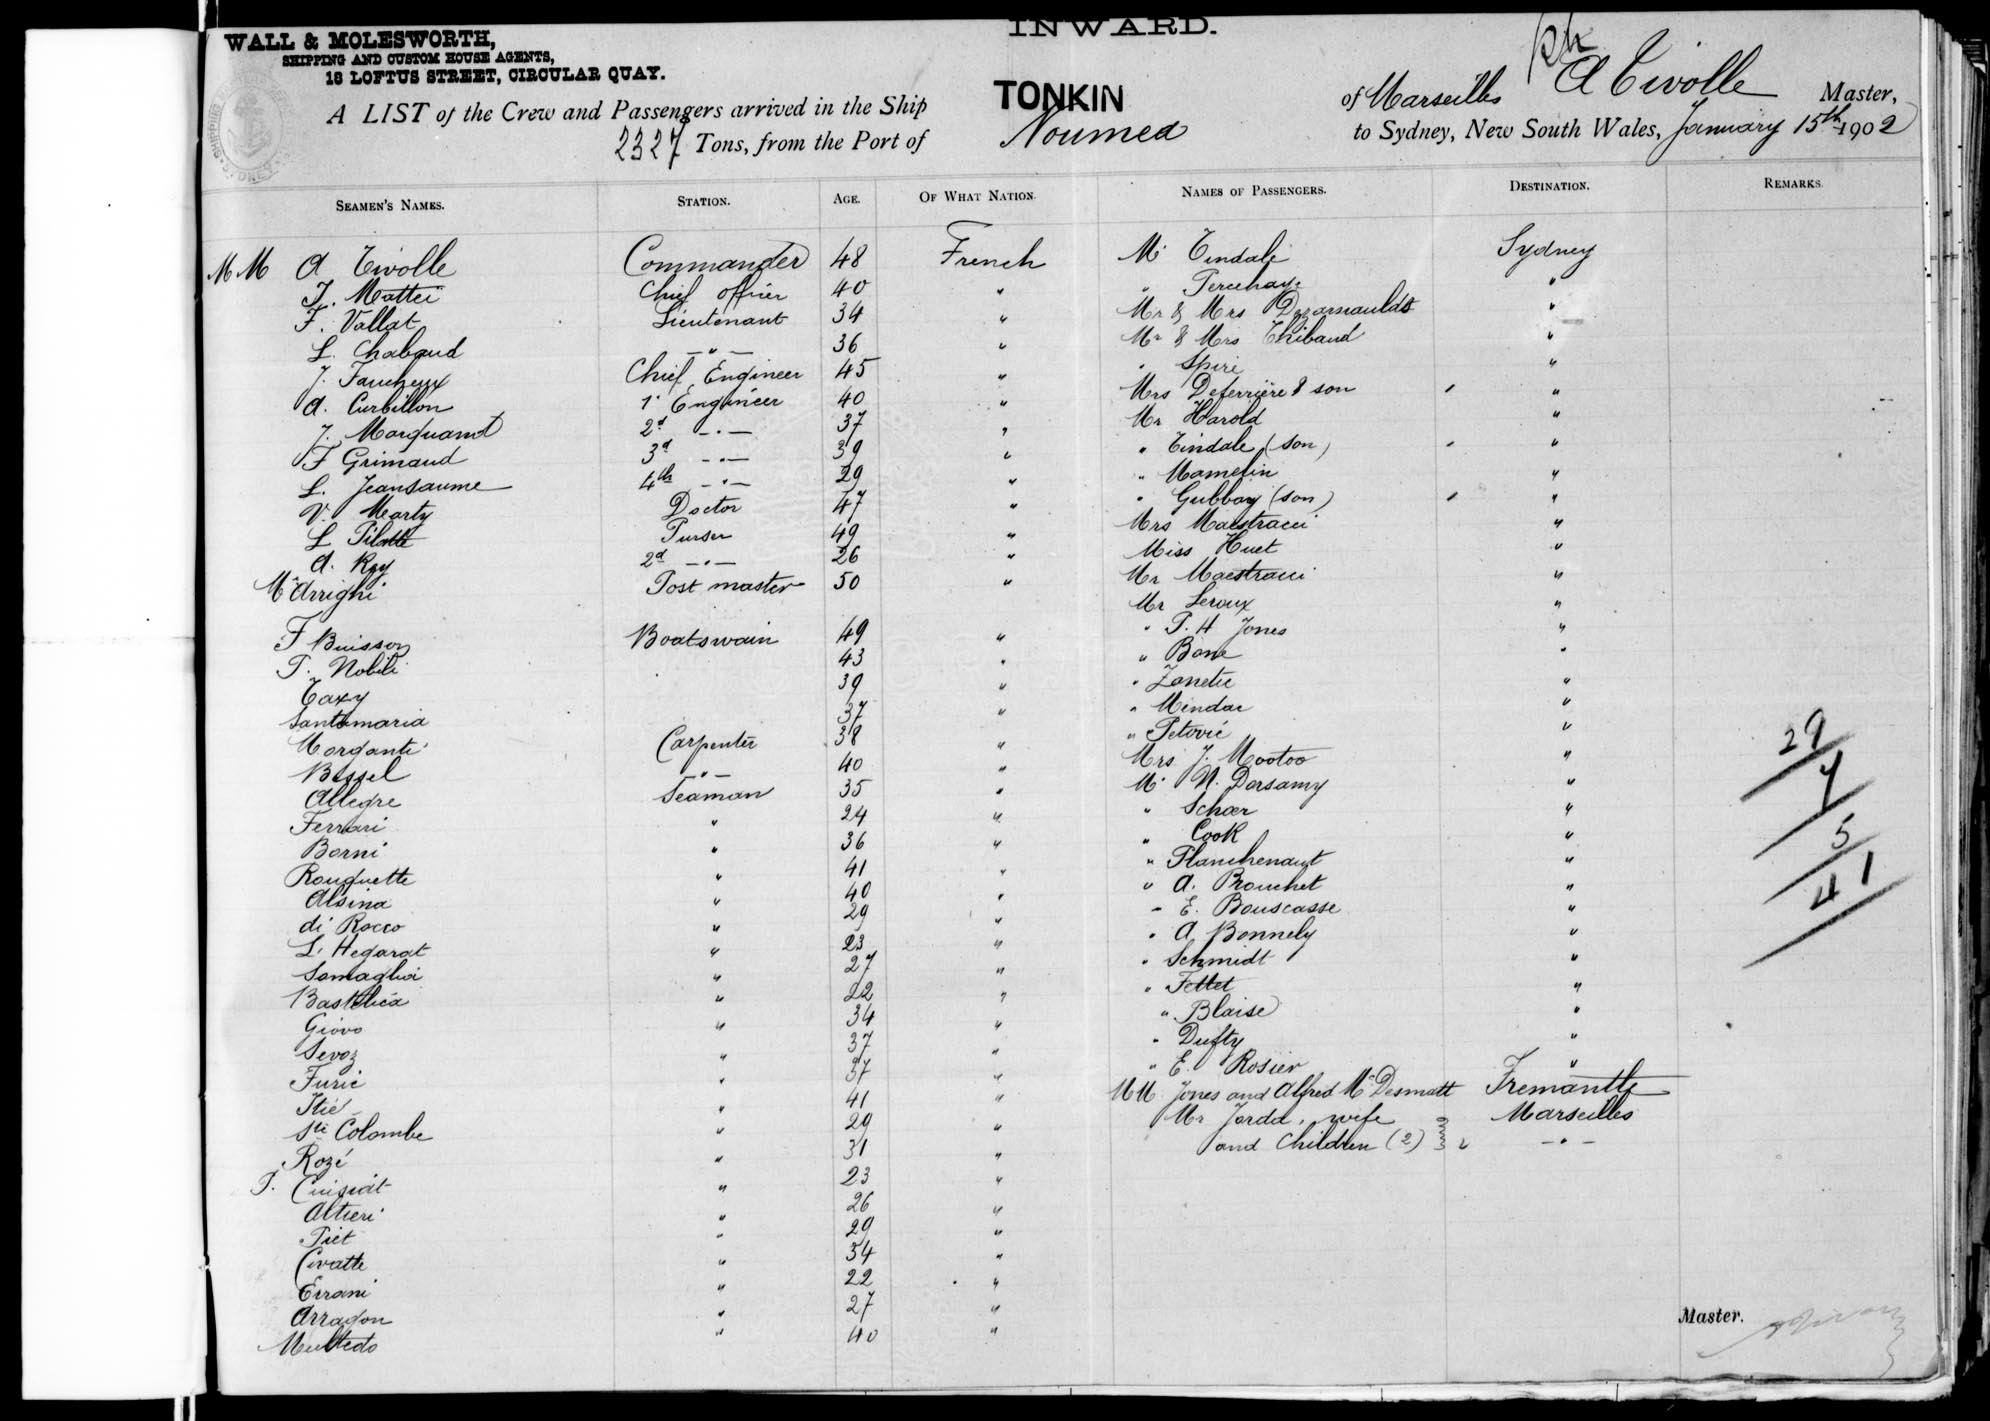 INWARD.
WALL & MOLESWORTH,
SHIPPING AND CUSTOM HOUSE AGENTS,
18 LOFTUS STREET, CIRCULAR QUAY.
A LIST of the Crew and Passengers arrived in the Ship TONKIN of Marseilles A Tivolle Master,
2327 Tons, from the Port of Noumea to Sydney, New South Wales, January 15th 1902
SEAMEN'S NAMES. STATION. AGE. OF WHAT NATION. NAMES OF PASSENGERS. DESTINATION. REMARKS.
MM A Tivolle Commander 48 French
J. Mattei Chief officer 40 "
F. Vallat Lieutenant 34 "
L. Chabaud —"— 36 "
J. Faucheux Chief Engineer 45 "
A. Curbillon 1r Engineer 40 "
J. Marquand 2d —"— 37 "
F Grimaud 3d —"— 39 "
L. Jeansaume 4th —"— 29 "
V. Marty Doctor 47 "
L Pilatte Purser 49 "
A. Rey 2d —"— 26 "
Mr Arrighi Post master 50 "
F Buisson Boatswain 49 "
P. Nobili 43 "
Taxy 39 "
Santamaria 37 "
Morganti Carpenter 38 "
Bessel —"— 40 "
Allegre Seaman 35 "
Ferrari " 24 "
Borni " 36 "
Rouquette " 41 "
Alsina " 40 "
di Rocco " 29 "
L. Hegarat " 23 "
Somaglia " 27 "
Bastelica " 22 "
Giovo " 34 "
Sevoz " 37 "
Furic " 37 "
Itié " 41 "
Ste Colombe " 29 "
Rozé " 31 "
P. Cuisiat " 23 "
Altieri " 26 "
Piet " 29 "
Civatte " 34 "
Errani " 22 "
Arragon " 27 "
Multedo " 40 "
Mr Tindale Sydney
" "
Mr & Mrs Dezarnaulds "
Mr & Mrs Thibaud "
" Spire "
Mrs Deferrière & son "
Mr Harold "
" Tindale (son) "
" Mamelin "
" Gubbay (son) "
Mrs Maestracci "
Miss Huet "
Mr Maestracci "
Mr Leroux "
" P. H Jones "
" Bone "
" Zanetic "
" Mindar "
" Petovic "
Mrs J. Mootoo "
Mr N. Dorsamy "
" Schær "
" Cook "
" Planchenault "
" A. Brouchet "
" E. Bouscasse "
" A. Bonnely "
" Schmidt "
" Fettet "
" Blaise "
" Dufty "
" E. Rosier "
MM. Jones and Alfred Mc Desmatt Fremantle
Mr Jorda, wife Marseilles
and Children (2) —"—
29
7
5
41
Master.